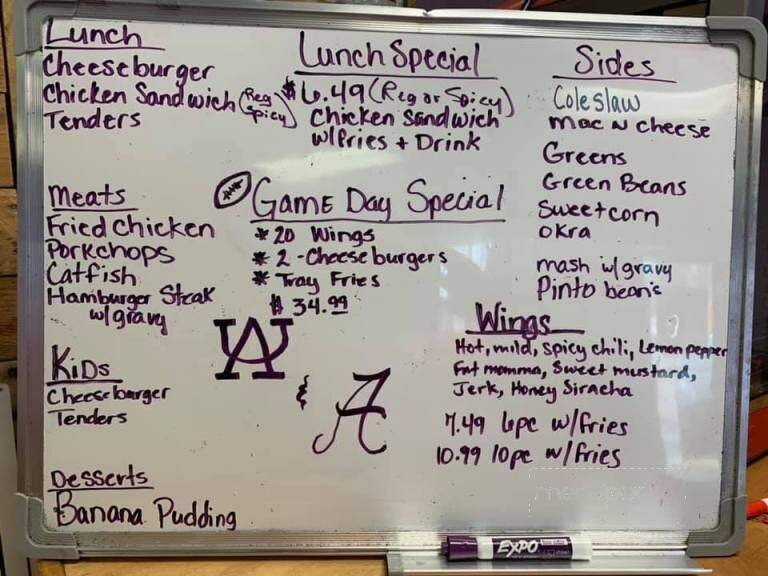 Lunch
Cheeseburger
Chicken Sandwich (Reg Spicy)
Tenders
Lunch Special
$6.49 (Reg or Spicy)
Chicken Sandwich
w/Fries + Drink
Sides
Coleslaw
mac n cheese
Greens
Green Beans
Sweetcorn
okra
mash w/gravy
Pinto beans
Meats
Fried Chicken
Porkchops
Catfish
Hamburger Steak
w/gravy
Game Day Special
* 20 Wings
* 2 - Cheeseburgers
* Tray Fries
$34.99
AU
&
A
Wings
Hot, mild, Spicy chili, Lemon pepper
Fat momma, Sweet mustard,
Jerk, Honey Siracha
7.49 6pc w/fries
10.99 10pc w/fries
Kids
Cheeseburger
Tenders
Desserts
Banana Pudding
EXPO